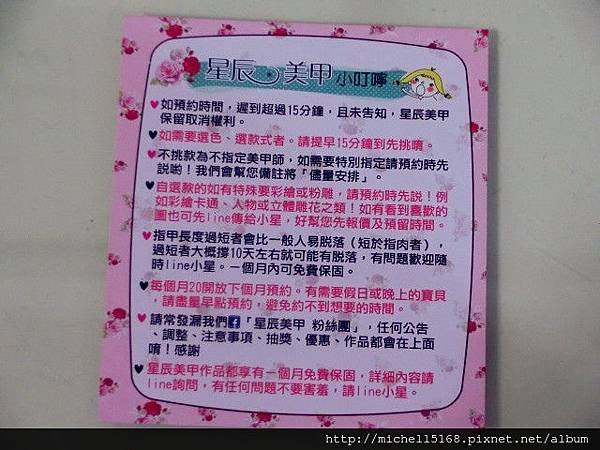 星辰美甲小叮嚀
♥如預約時間，遲到超過15分鐘，且未告知，星辰美甲
保留取消權利。
♥如需要選色、選款式者。請提早15分鐘到先挑唷。
♥不挑款為不指定美甲師，如需要特別指定請預約時先
說喲！我們會幫您備註將「儘量安排」。
♥自選款的如有特殊要彩繪或粉雕，請預約時先說！例
如彩繪卡通、人物或立體雕花之類！如有看到喜歡的
圖也可先line傳給小星，好幫您先報價及預留時間。
♥指甲長度過短者會比一般人易脫落（短於指肉者），
過短者大概撐10天左右就可能有脫落，有問題歡迎隨
時line小星。一個月內可免費保固。
♥每個月20開放下個月預約。有需要假日或晚上的寶貝
，請盡量早點預約，避免約不到想要的時間。
♥請常發漏我們f「星辰美甲 粉絲團」，任何公告
、調整、注意事項、抽獎、優惠、作品都會在上面
唷！感謝
♥星辰美甲作品都享有一個月免費保固，詳細內容請
line詢問，有任何問題不要害羞，請line小星。
http://michell5168.pixnet.net/album